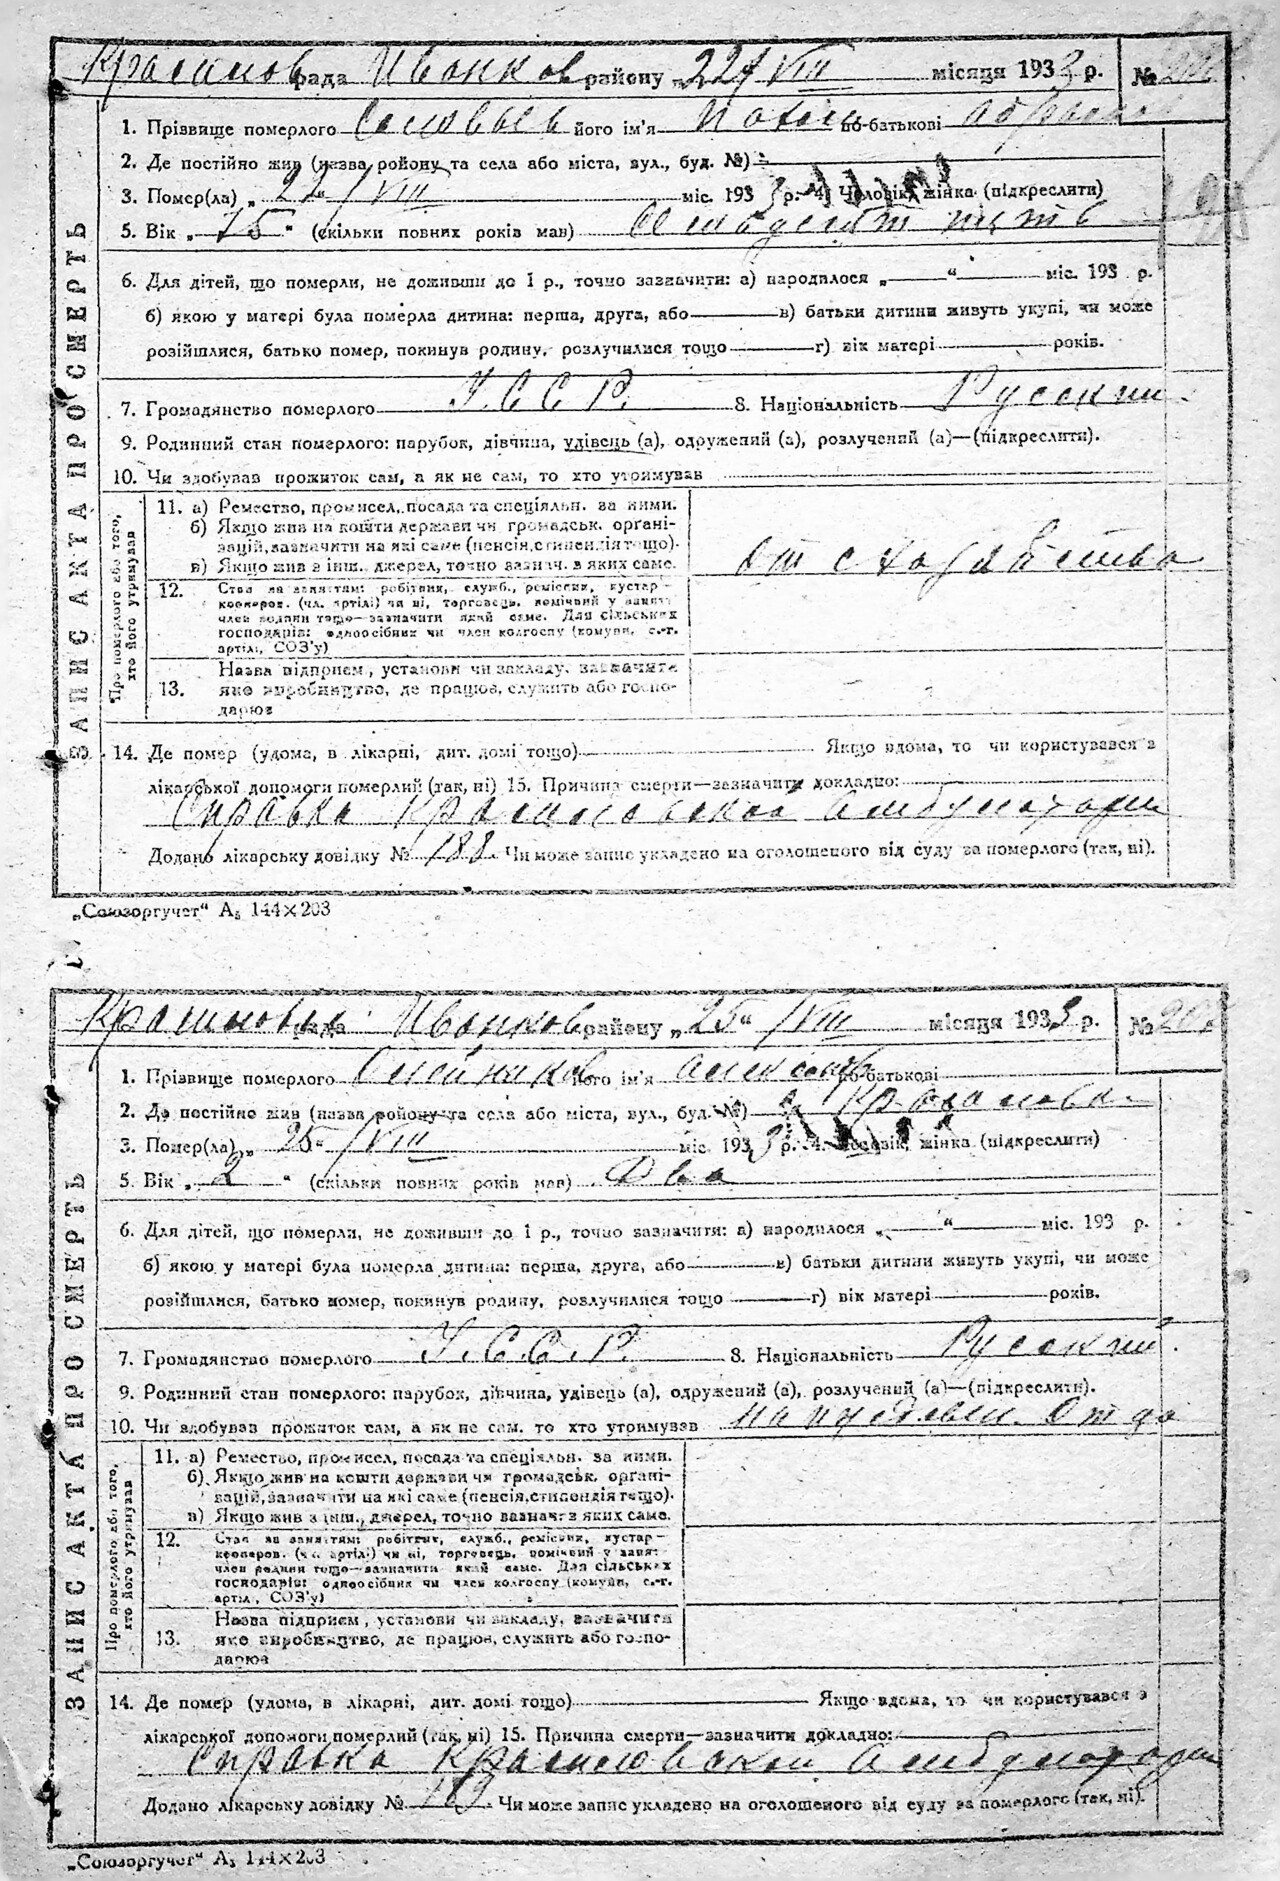 рада Иванков району „22“ VIII місяця 1933 р. №
1. Прізвище померлого його ім'я по-батькові
2. Де постійно жив (назва району та села або міста, вул., буд. №)
3. Помер(ла) „22“ VIII міс. 1933 р. 4. Чоловік, жінка (підкреслити)
5. Вік „75“ (скільки повних років мав)
6. Для дітей, що померли, не доживши до 1 р., точно зазначити: а) народилося „ “ міс. 193 р.
б) якою у матері була померла дитина: перша, друга, або в) батьки дитини живуть укупі, чи може
розійшлися, батько помер, покинув родину, розлучилися тощо г) вік матері років.
7. Громадянство померлого У.С.С.Р. 8. Національність Русский
9. Родинний стан померлого: парубок, дівчина, удівець (а), одружений (а), розлучений (а)—(підкреслити).
10. Чи здобував прожиток сам, а як не сам, то хто утримував
ЗАПИС АКТА ПРО СМЕРТЬ
Про померлого або того,
хто його утримував
11. а) Ремество, промисел, посада та спеціяльн. за ними.
б) Якщо жив на кошти держави чи громадськ. органі-
зацій, зазначити на які саме (пенсія, стипендія тощо).
в) Якщо жив з інш. джерел, точно зазнач. з яких саме.
от с хозяйства
12. Стан за заняттям: робітник, служб., ремісник, кустар
кооперов. (чл. артілі) чи ні, торговець, помічний у занят.
член родини тощо—зазначити який саме. Для сільських
господарів: одноосібник чи член колгоспу (комуни, с.-г.
артіл., СОЗ'у)
13. Назва підприєм., установи чи закладу, зазначити
яке виробництво, де працює, служить або госпо-
дарює
14. Де помер (удома, в лікарні, дит. домі тощо) Якщо вдома, то чи користувався з
лікарської допомоги померлий (так, ні) 15. Причина смерти—зазначити докладно:
Справка Амбулатории
Додано лікарську довідку № 188. Чи може запис укладено на оголошеного від суду за померлого (так, ні).
„Союзоргучет“ А₅ 144×203
рада Иванков району „25“ VIII місяця 1933 р. №
1. Прізвище померлого Олейников його ім'я по-батькові
2. Де постійно жив (назва району та села або міста, вул., буд. №)
3. Помер(ла) „25“ VIII міс. 1933 р. 4. Чоловік, жінка (підкреслити)
5. Вік „2“ (скільки повних років мав) Два
6. Для дітей, що померли, не доживши до 1 р., точно зазначити: а) народилося „ “ міс. 193 р.
б) якою у матері була померла дитина: перша, друга, або в) батьки дитини живуть укупі, чи може
розійшлися, батько помер, покинув родину, розлучилися тощо г) вік матері років.
7. Громадянство померлого У.С.С.Р. 8. Національність Русский
9. Родинний стан померлого: парубок, дівчина, удівець (а), одружений (а), розлучений (а)—(підкреслити).
10. Чи здобував прожиток сам, а як не сам, то хто утримував
ЗАПИС АКТА ПРО СМЕРТЬ
Про померлого або того,
хто його утримував
11. а) Ремество, промисел, посада та спеціяльн. за ними.
б) Якщо жив на кошти держави чи громадськ. органі-
зацій, зазначити на які саме (пенсія, стипендія тощо).
в) Якщо жив з інш. джерел, точно зазнач. з яких саме.
12. Стан за заняттям: робітник, служб., ремісник, кустар
кооперов. (чл. артілі) чи ні, торговець, помічний у занят.
член родини тощо—зазначити який саме. Для сільських
господарів: одноосібник чи член колгоспу (комуни, с.-г.
артіл., СОЗ'у)
13. Назва підприєм., установи чи закладу, зазначити
яке виробництво, де працює, служить або госпо-
дарює
14. Де помер (удома, в лікарні, дит. домі тощо) Якщо вдома, то чи користувався з
лікарської допомоги померлий (так, ні) 15. Причина смерти—зазначити докладно:
Справка Амбулатории
Додано лікарську довідку № 189. Чи може запис укладено на оголошеного від суду за померлого (так, ні).
„Союзоргучет“ А₅ 144×203